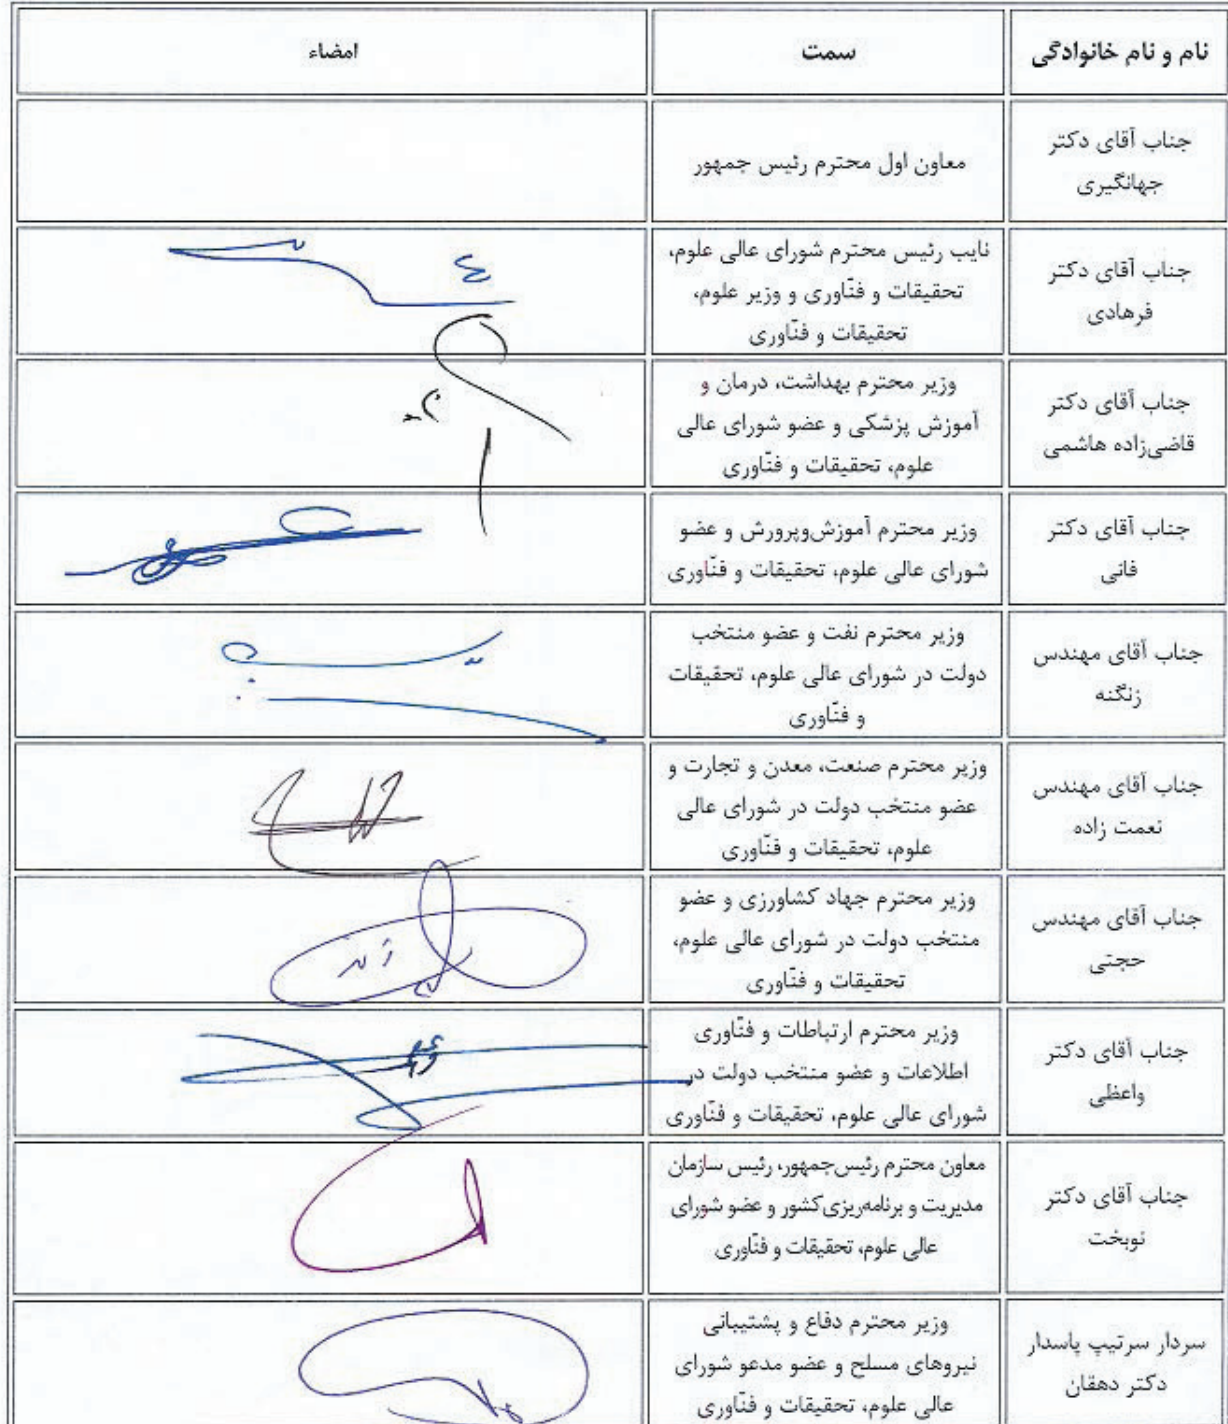 نام و نام خانوادگی
سمت
امضاء
جناب آقای دکتر
جهانگیری
معاون اول محترم رئیس جمهور
جناب آقای دکتر
فرهادی
نایب رئیس محترم شورای عالی علوم،
تحقیقات و فنّاوری و وزیر علوم،
تحقیقات و فنّاوری
جناب آقای دکتر
قاضی‌زاده هاشمی
وزیر محترم بهداشت، درمان و
آموزش پزشکی و عضو شورای عالی
علوم، تحقیقات و فنّاوری
جناب آقای دکتر
فانی
وزیر محترم آموزش‌وپرورش و عضو
شورای عالی علوم، تحقیقات و فنّاوری
جناب آقای مهندس
زنگنه
وزیر محترم نفت و عضو منتخب
دولت در شورای عالی علوم، تحقیقات
و فنّاوری
جناب آقای مهندس
نعمت زاده
وزیر محترم صنعت، معدن و تجارت و
عضو منتخب دولت در شورای عالی
علوم، تحقیقات و فنّاوری
جناب آقای مهندس
حجتی
وزیر محترم جهاد کشاورزی و عضو
منتخب دولت در شورای عالی علوم،
تحقیقات و فنّاوری
جناب آقای دکتر
واعظی
وزیر محترم ارتباطات و فنّاوری
اطلاعات و عضو منتخب دولت در
شورای عالی علوم، تحقیقات و فنّاوری
جناب آقای دکتر
نوبخت
معاون محترم رئیس‌جمهور، رئیس سازمان
مدیریت و برنامه‌ریزی‌کشور و عضو شورای
عالی علوم، تحقیقات و فنّاوری
سردار سرتیپ پاسدار
دکتر دهقان
وزیر محترم دفاع و پشتیبانی
نیروهای مسلح و عضو مدعو شورای
عالی علوم، تحقیقات و فنّاوری